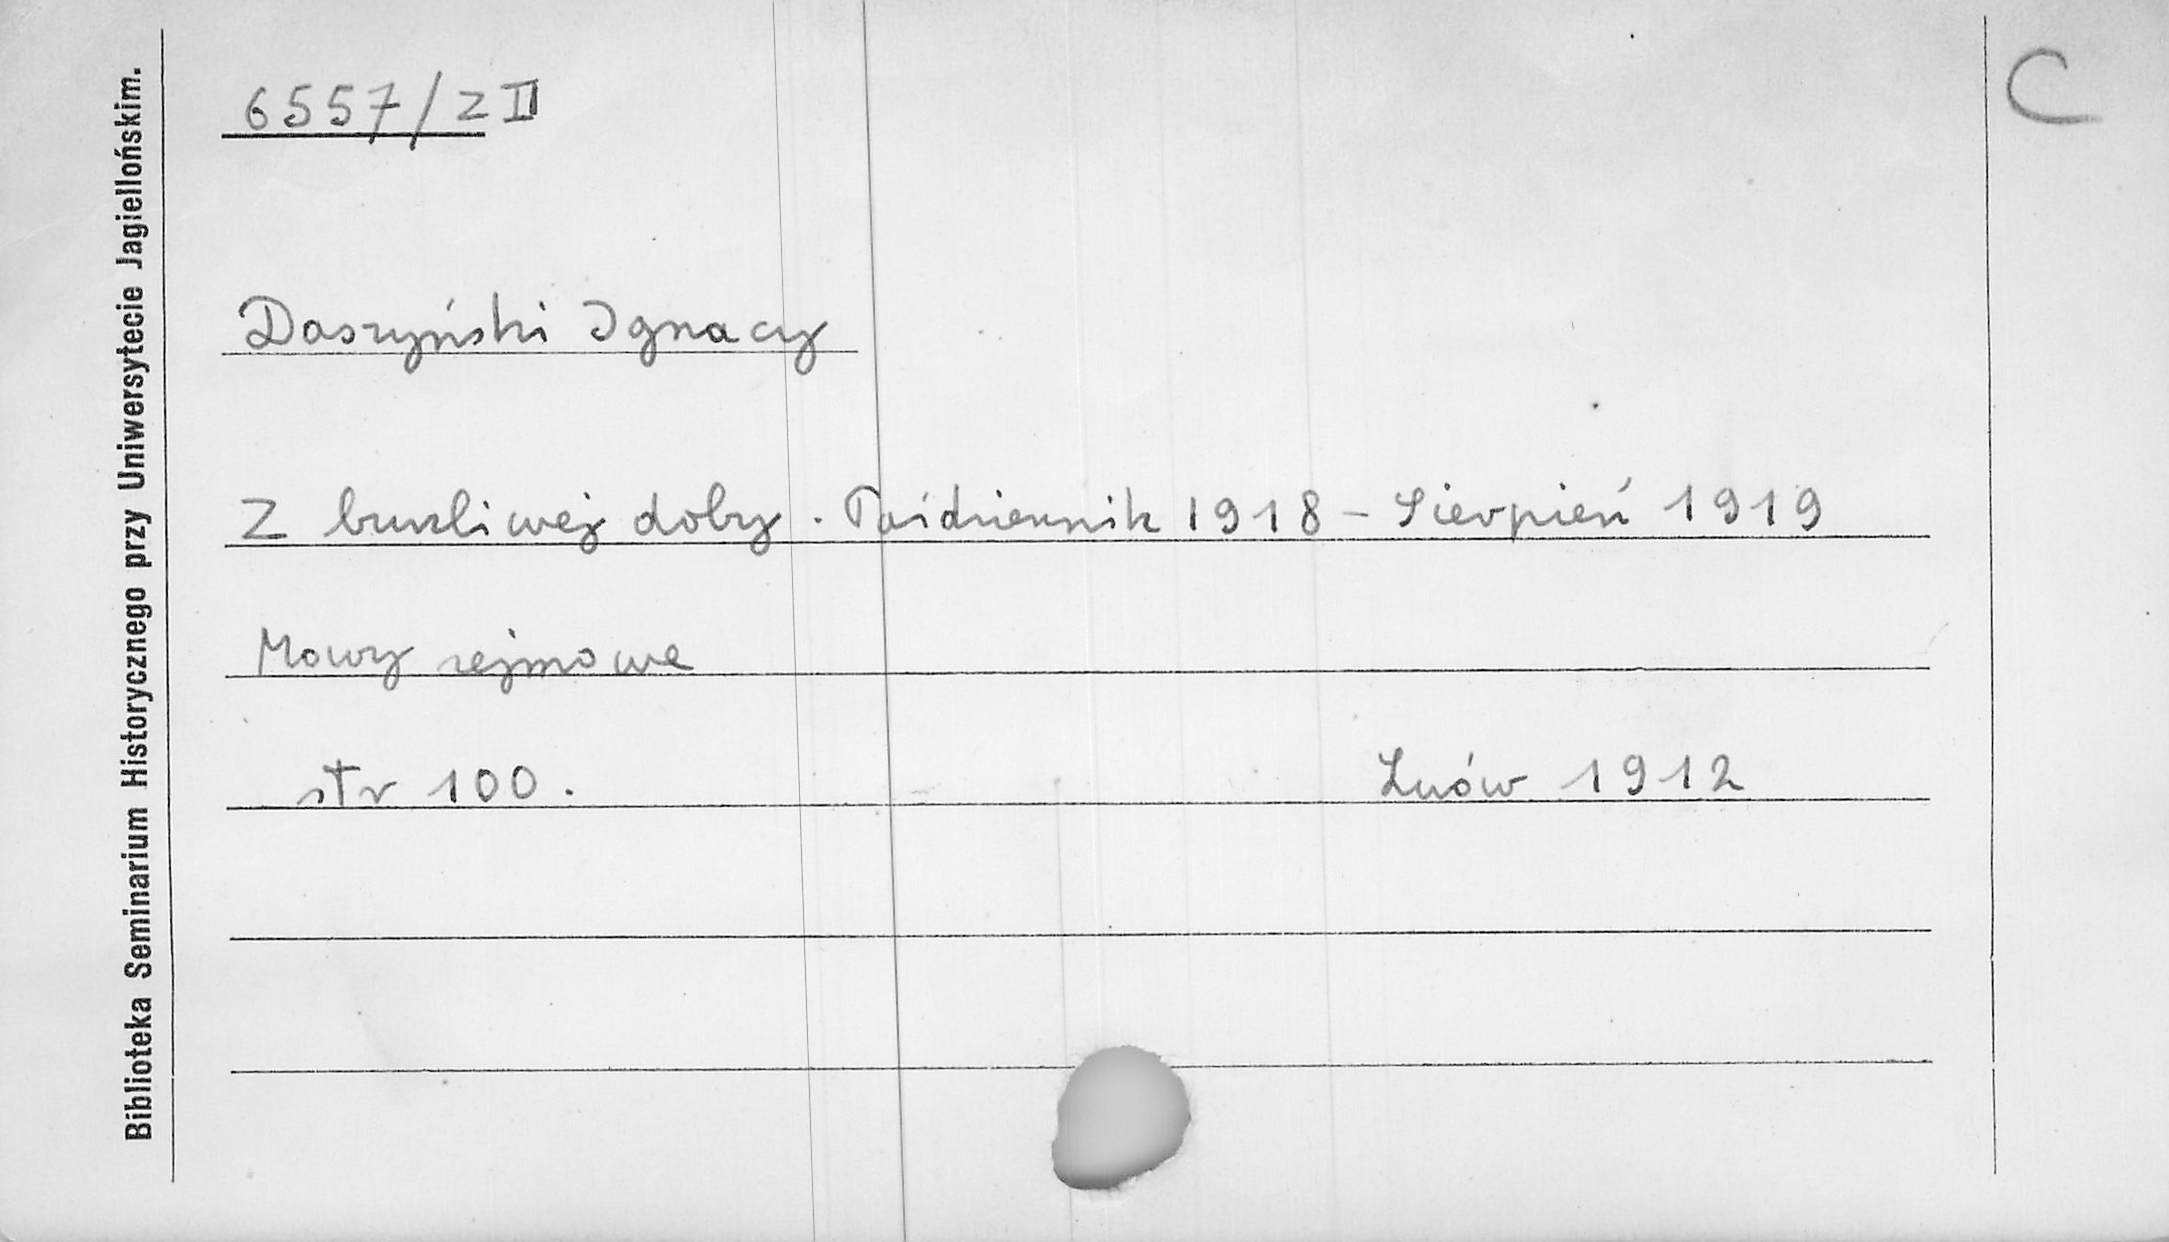 6557/z II
C
Daszyński Ignacy
Z burzliwej doby. Październik 1918 – Sierpień 1919
Mowy sejmowe
str 100.
Lwów 1912
Biblioteka Seminarium Historycznego przy Uniwersytecie Jagiellońskim.